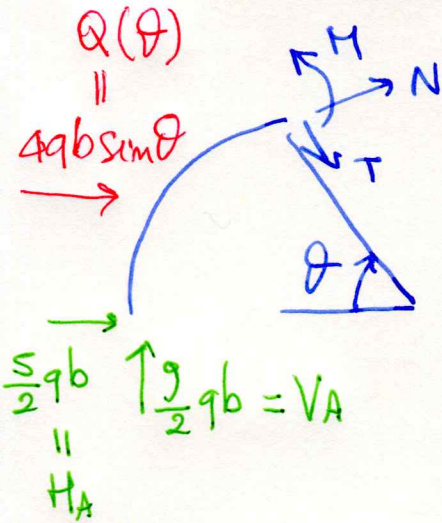 Q(θ)
=
4qb sinθ
M
N
T
θ
5/2 qb
=
H_A
9/2 qb = V_A